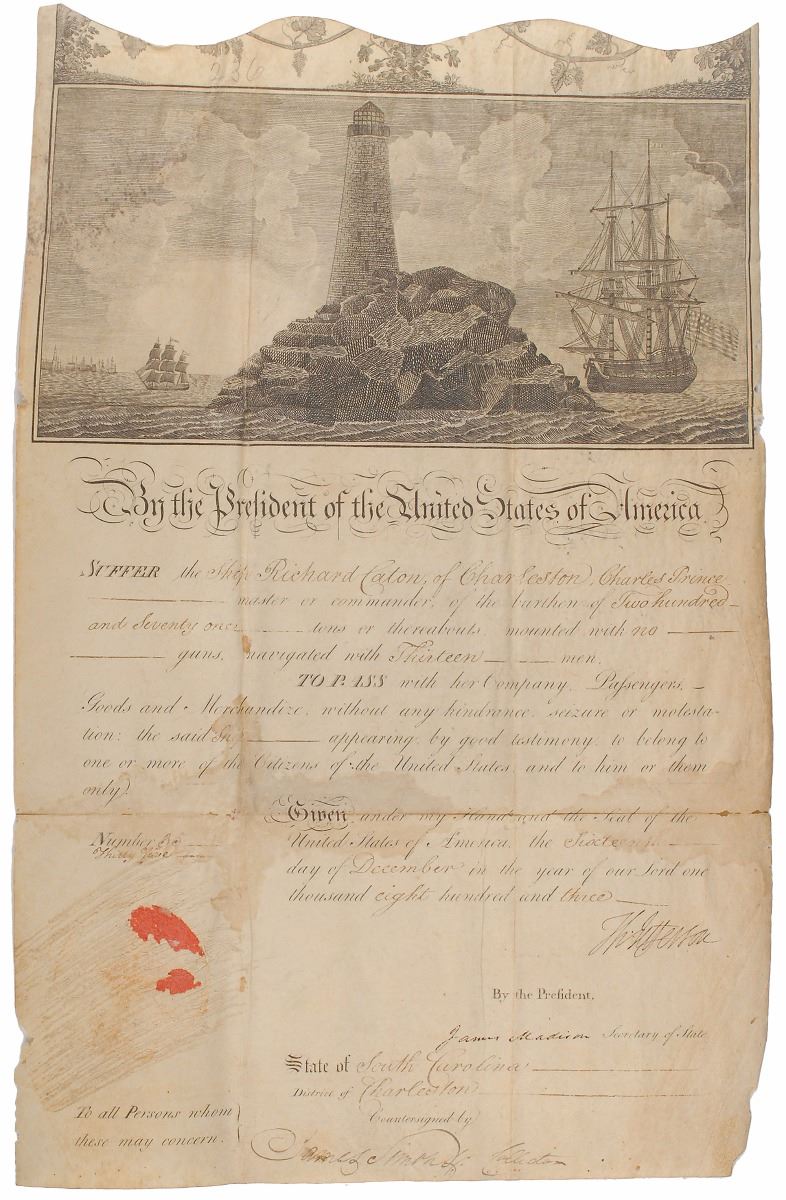 236
By the President of the United States of America.
SUFFER the Ship Richard Caton, of Charleston, Charles Prince
master or commander, of the burthen of Two hundred
and Seventy one tons or thereabouts, mounted with no
guns, navigated with Thirteen men,
TO PASS with her Company, Passengers,
Goods and Merchandize, without any hindrance, seizure or molesta-
tion; the said Ship appearing by good testimony to belong to
one or more of the Citizens of the United States; and to him or them
only.
Given under my Hand and the Seal of the
United States of America, the Sixteenth
day of December in the year of our Lord one
thousand eight hundred and three
Number
Thirty five
Th: Jefferson
By the President,
James Madison Secretary of State
State of South Carolina
District of Charleston
Countersigned by
Collector
To all Persons whom
these may concern.